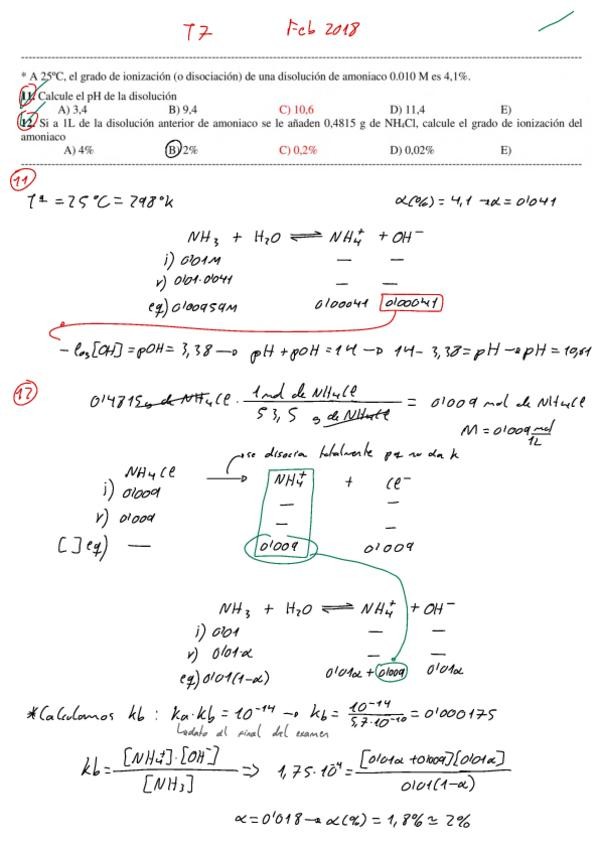 T7 Feb 2018
* A 25ºC, el grado de ionización (o disociación) de una disolución de amoniaco 0.010 M es 4,1%.
11. Calcule el pH de la disolución
A) 3,4 B) 9,4 C) 10,6 D) 11,4 E)
12. Si a 1L de la disolución anterior de amoniaco se le añaden 0,4815 g de NH₄Cl, calcule el grado de ionización del
amoniaco
A) 4% B) 2% C) 0,2% D) 0,02% E)
11
Tª = 25ºC = 298ºk α(%) = 4,1 → α = 0'041
NH₃ + H₂O ⇌ NH₄⁺ + OH⁻
i) 0'01M — —
r) 0'01·0'041 — —
eq) 0'00959M 0'00041 0'00041
- log[OH] = pOH = 3,38 → pH + pOH = 14 → 14 - 3,38 = pH → pH = 10,61
12
0'4815 g de NH₄Cl · 1 mol de NH₄Cl / 53,5 g de NH₄Cl = 0'009 mol de NH₄Cl
M = 0'009 mol / 1L
se disocia totalmente pq no da k
NH₄Cl → NH₄⁺ + Cl⁻
i) 0'009 — —
r) 0'009 — —
[ ] eq) — 0'009 0'009
NH₃ + H₂O ⇌ NH₄⁺ + OH⁻
i) 0'01 — —
r) 0'01·α — —
eq) 0'01(1-α) 0'01α + 0'009 0'01α
*Calculamos kb : ka·kb = 10⁻¹⁴ → kb = 10⁻¹⁴ / 5,7·10⁻¹⁰ = 0'0000175
↳ dato al final del examen
kb = [NH₄⁺]·[OH⁻] / [NH₃] ⇒ 1,75·10⁻⁴ = [0'01α + 0'009][0'01α] / 0'01(1-α)
α = 0'018 → α(%) = 1,8% ≃ 2%